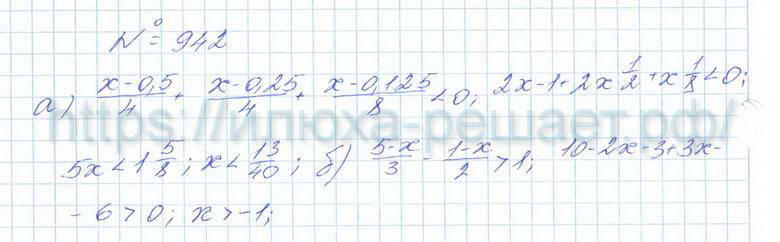 № 942
а) (x-0,5)/4 + (x-0,25)/4 + (x-0,125)/8 < 0; 2x-1+2x 1/2 + x 1/8 < 0;
5x < 1 5/8; x < 13/40; б) (5-x)/3 - (1-x)/2 > 1; 10-2x-3+3x-
- 6 > 0; x > -1;
https://илюха-решает.рф/